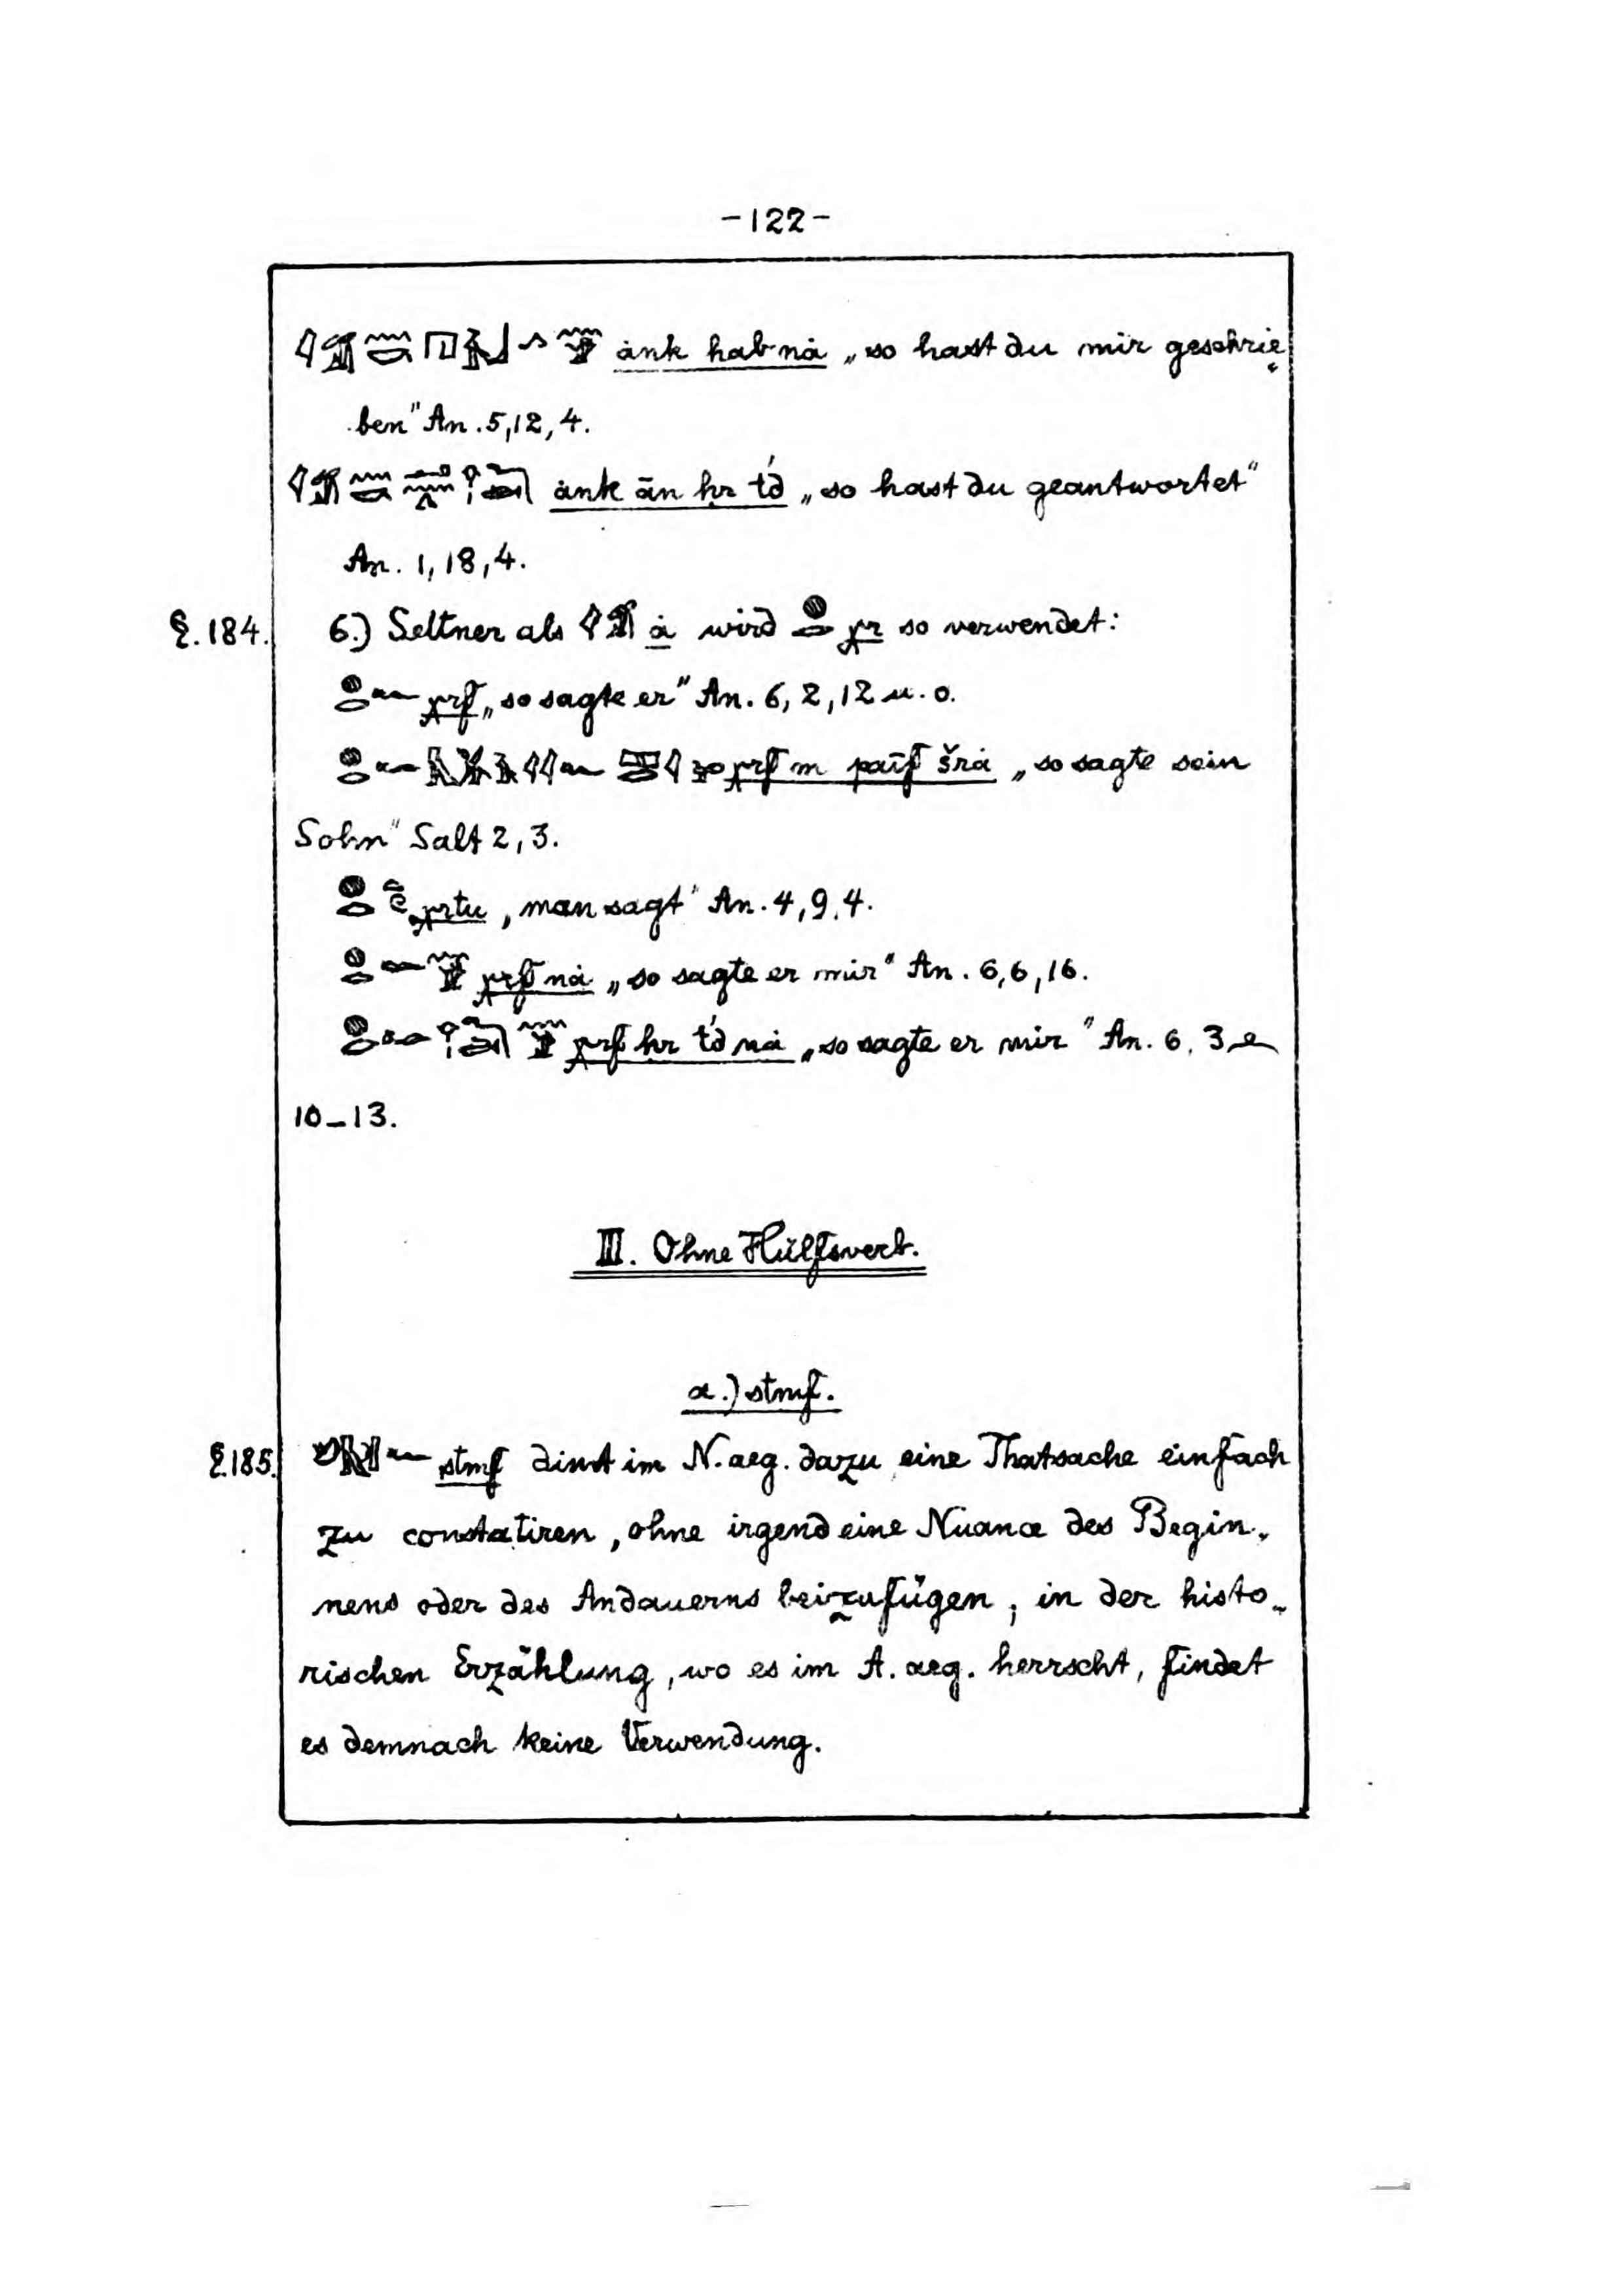 -122-
ȧnk hab nȧ „so hast du mir geschrie„
ben" An. 5, 12, 4.
ȧnk ān ḥr t'd „so hast du geantwortet"
An. 1, 18, 4.
§. 184. 6.) Seltner als ȧ wird χr so verwendet:
χrf „so sagte er" An. 6, 2, 12 u. o.
χrf m paif šrȧ „so sagte sein
Sohn" Salt 2, 3.
χrtu „man sagt" An. 4, 9, 4.
χrf nȧ „so sagte er mir" An. 6, 6, 16.
χrf ḥr t'd nȧ „so sagte er mir" An. 6, 3
10-13.
III. Ohne Hülfsverb.
α.) stmf.
§. 185. stmf dient im N. aeg. dazu eine Thatsache einfach
zu constatiren, ohne irgend eine Nüance des Begin„
nens oder des Andauerns beizufügen; in der histo„
rischen Erzählung, wo es im A. aeg. herrscht, findet
es demnach keine Verwendung.